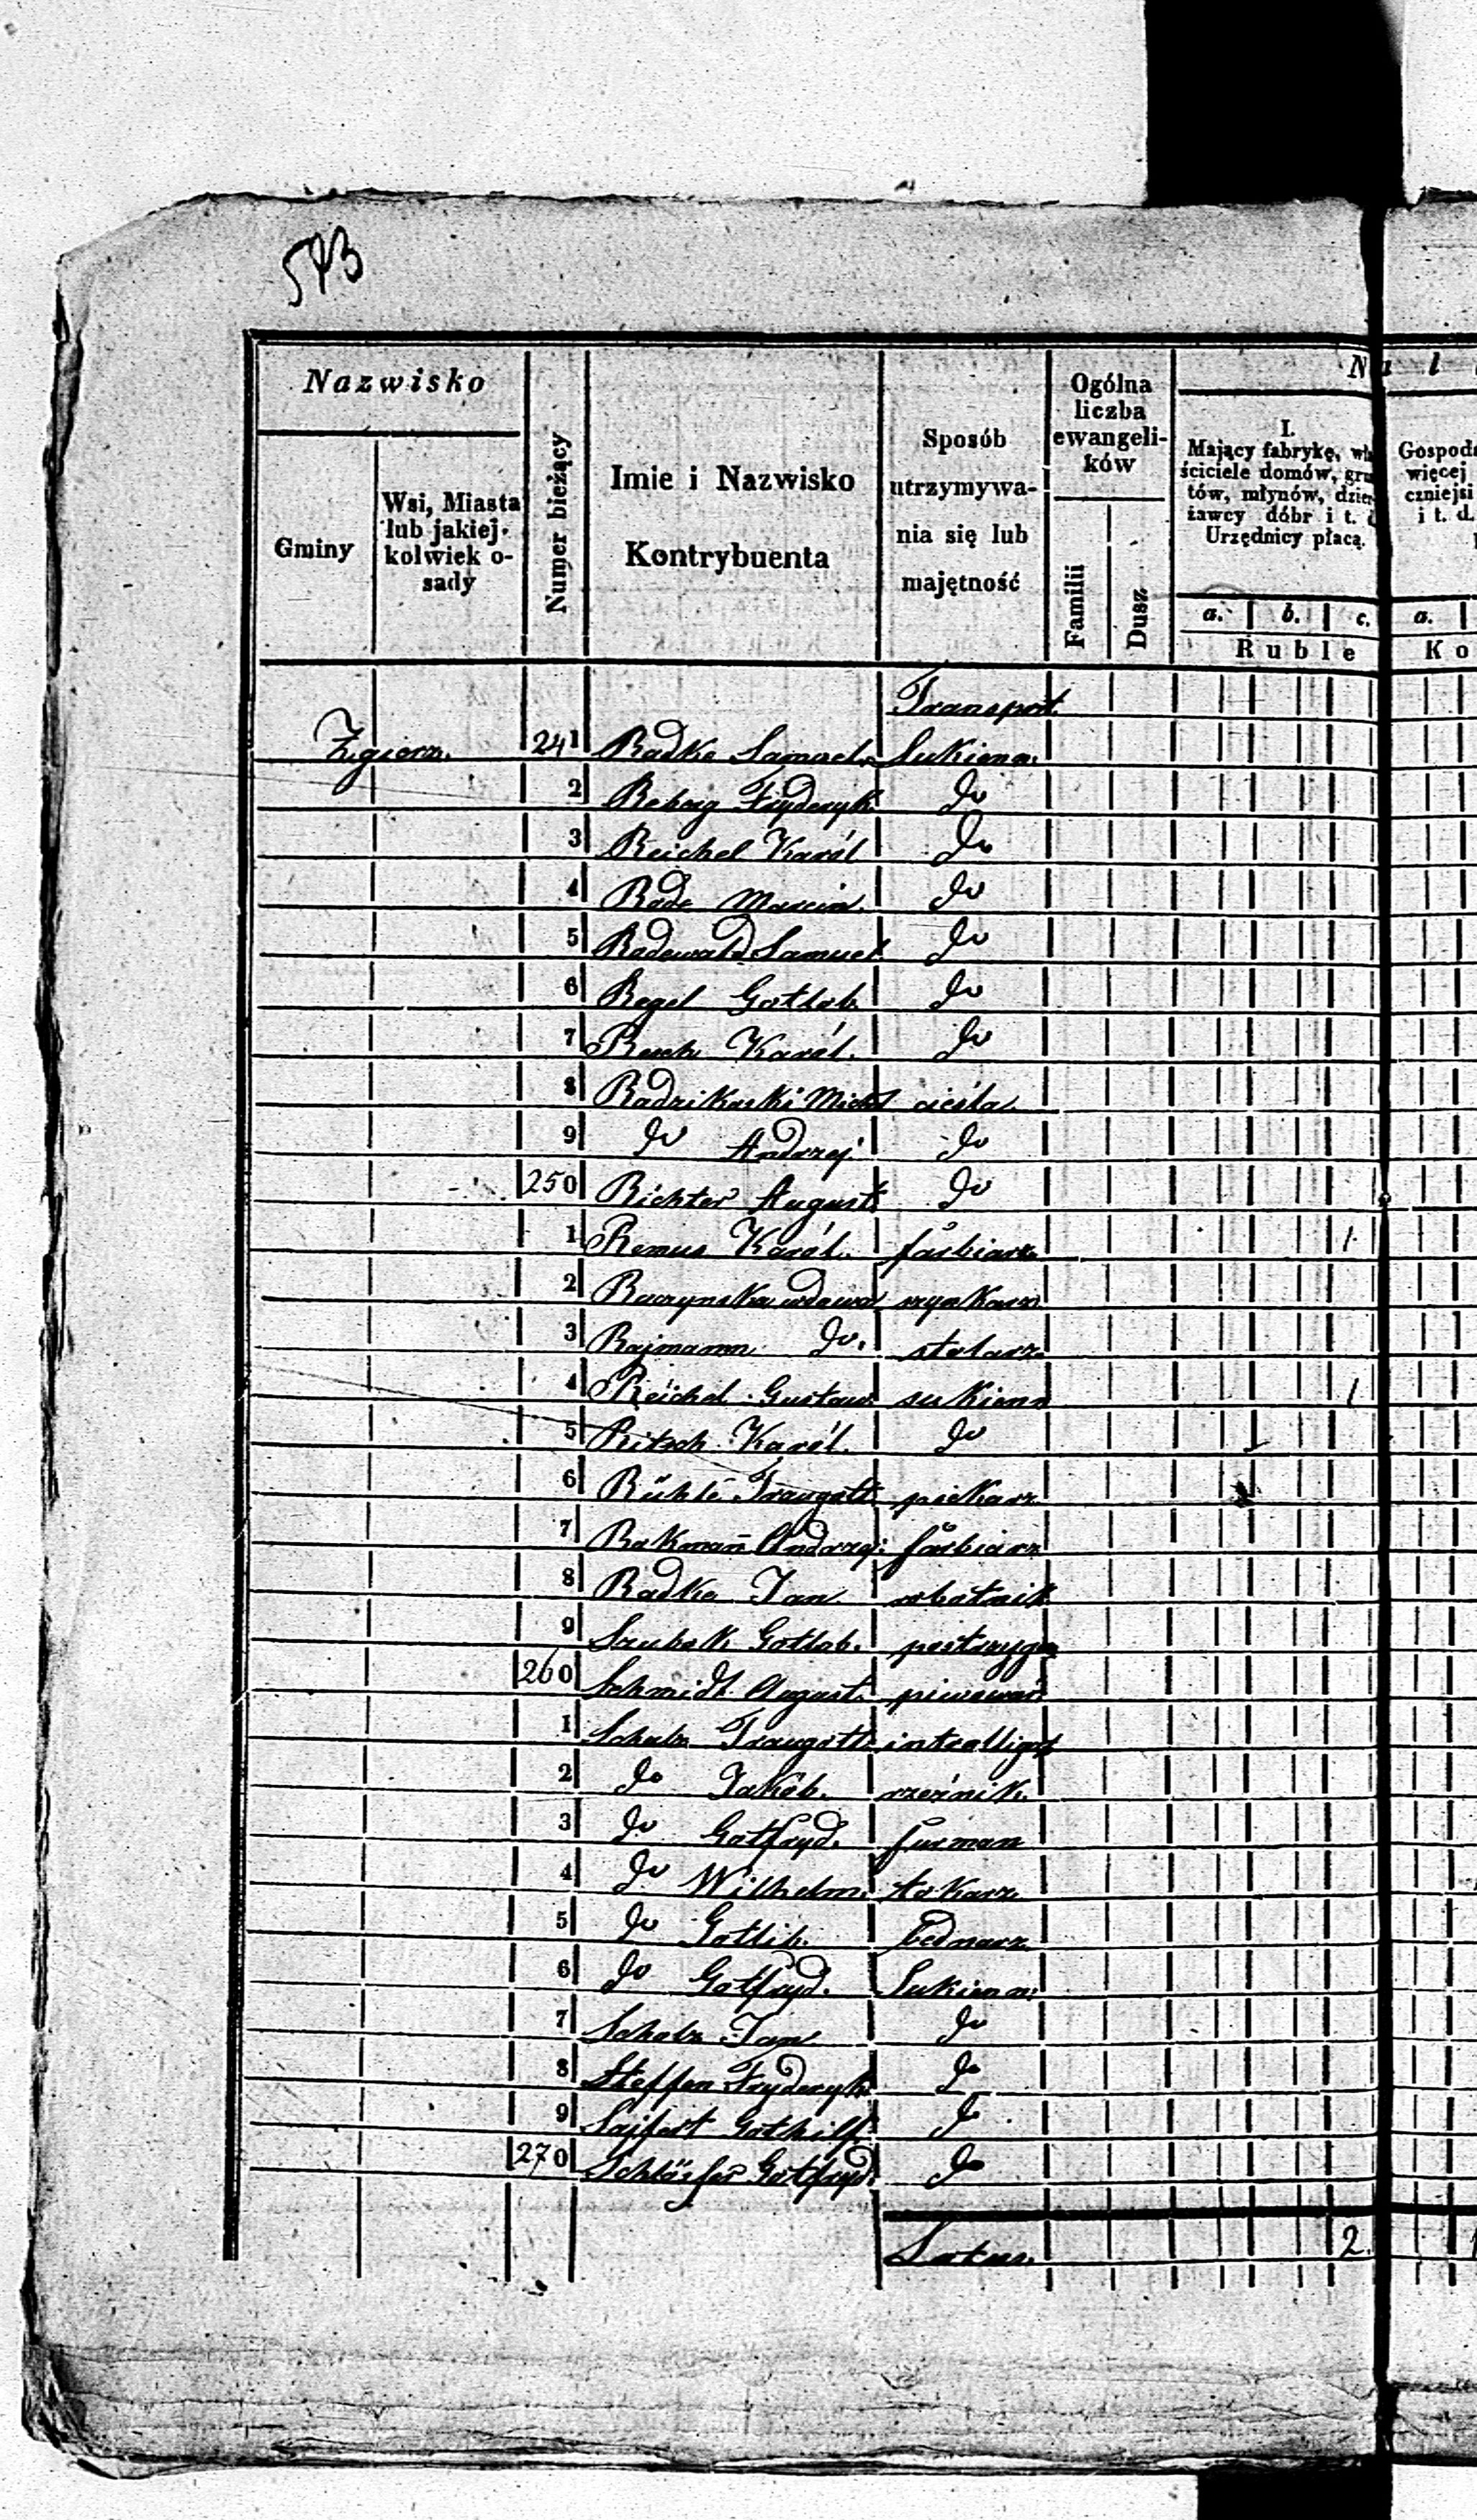 543
Nazwisko
Gminy
Wsi, Miasta
lub jakiej-
kolwiek o-
sady
Numer bieżący
Imie i Nazwisko
Kontrybuenta
Sposób
utrzymywa-
nia się lub
majętność
Ogólna
liczba
ewangeli-
ków
Familii
Dusz
N a l
I.
Mający fabrykę, wła
ściciele domów, grun
tów, młynów, dzier
żawcy dóbr i t. d
Urzędnicy płacą.
Gospod
więcej
czniejsi
i t. d.
a. b. c. a.
Ruble Ko
Transport
Zgierz. 241 Radke Samuel Sukienn:
2 Reberg Fryderyk do
3 Reichel Karól do
4 Rode Marcin. do
5 Radewald Samuel do
6 Regel Gotlob. do
7 Resch Karól. do
8 Radzikoski Mich cieśla
9 do Andrzej do
250 Richter August do
1 Remus Karól. farbiarz 1
2 Raczynska wdowa szynkarz
3 Rajmann do. stolarz
4 Reichel Gustaw sukienn 1
5 Ritsch Karól. do
6 Rühle Traugott piekarz
7 Rokmañ Andrzej farbiarz
8 Radke Jan robotnik
9 Szubek Gotlob. postrzyga
260 Schmidt August. piwowar
1 Schulz Traugott introlligat
2 do Jakób. rzeźnik
3 do Gotfryd. furman
4 do Wilhelm. tokarz
5 do Gotlib. bednarz
6 do Gotfryd. Sukienn:
7 Scholz Jan do
8 Steffen Fryderyk do
9 Sajfert Gothilf. do
270 Schlösser Gotfryd. do
Latus. 2.